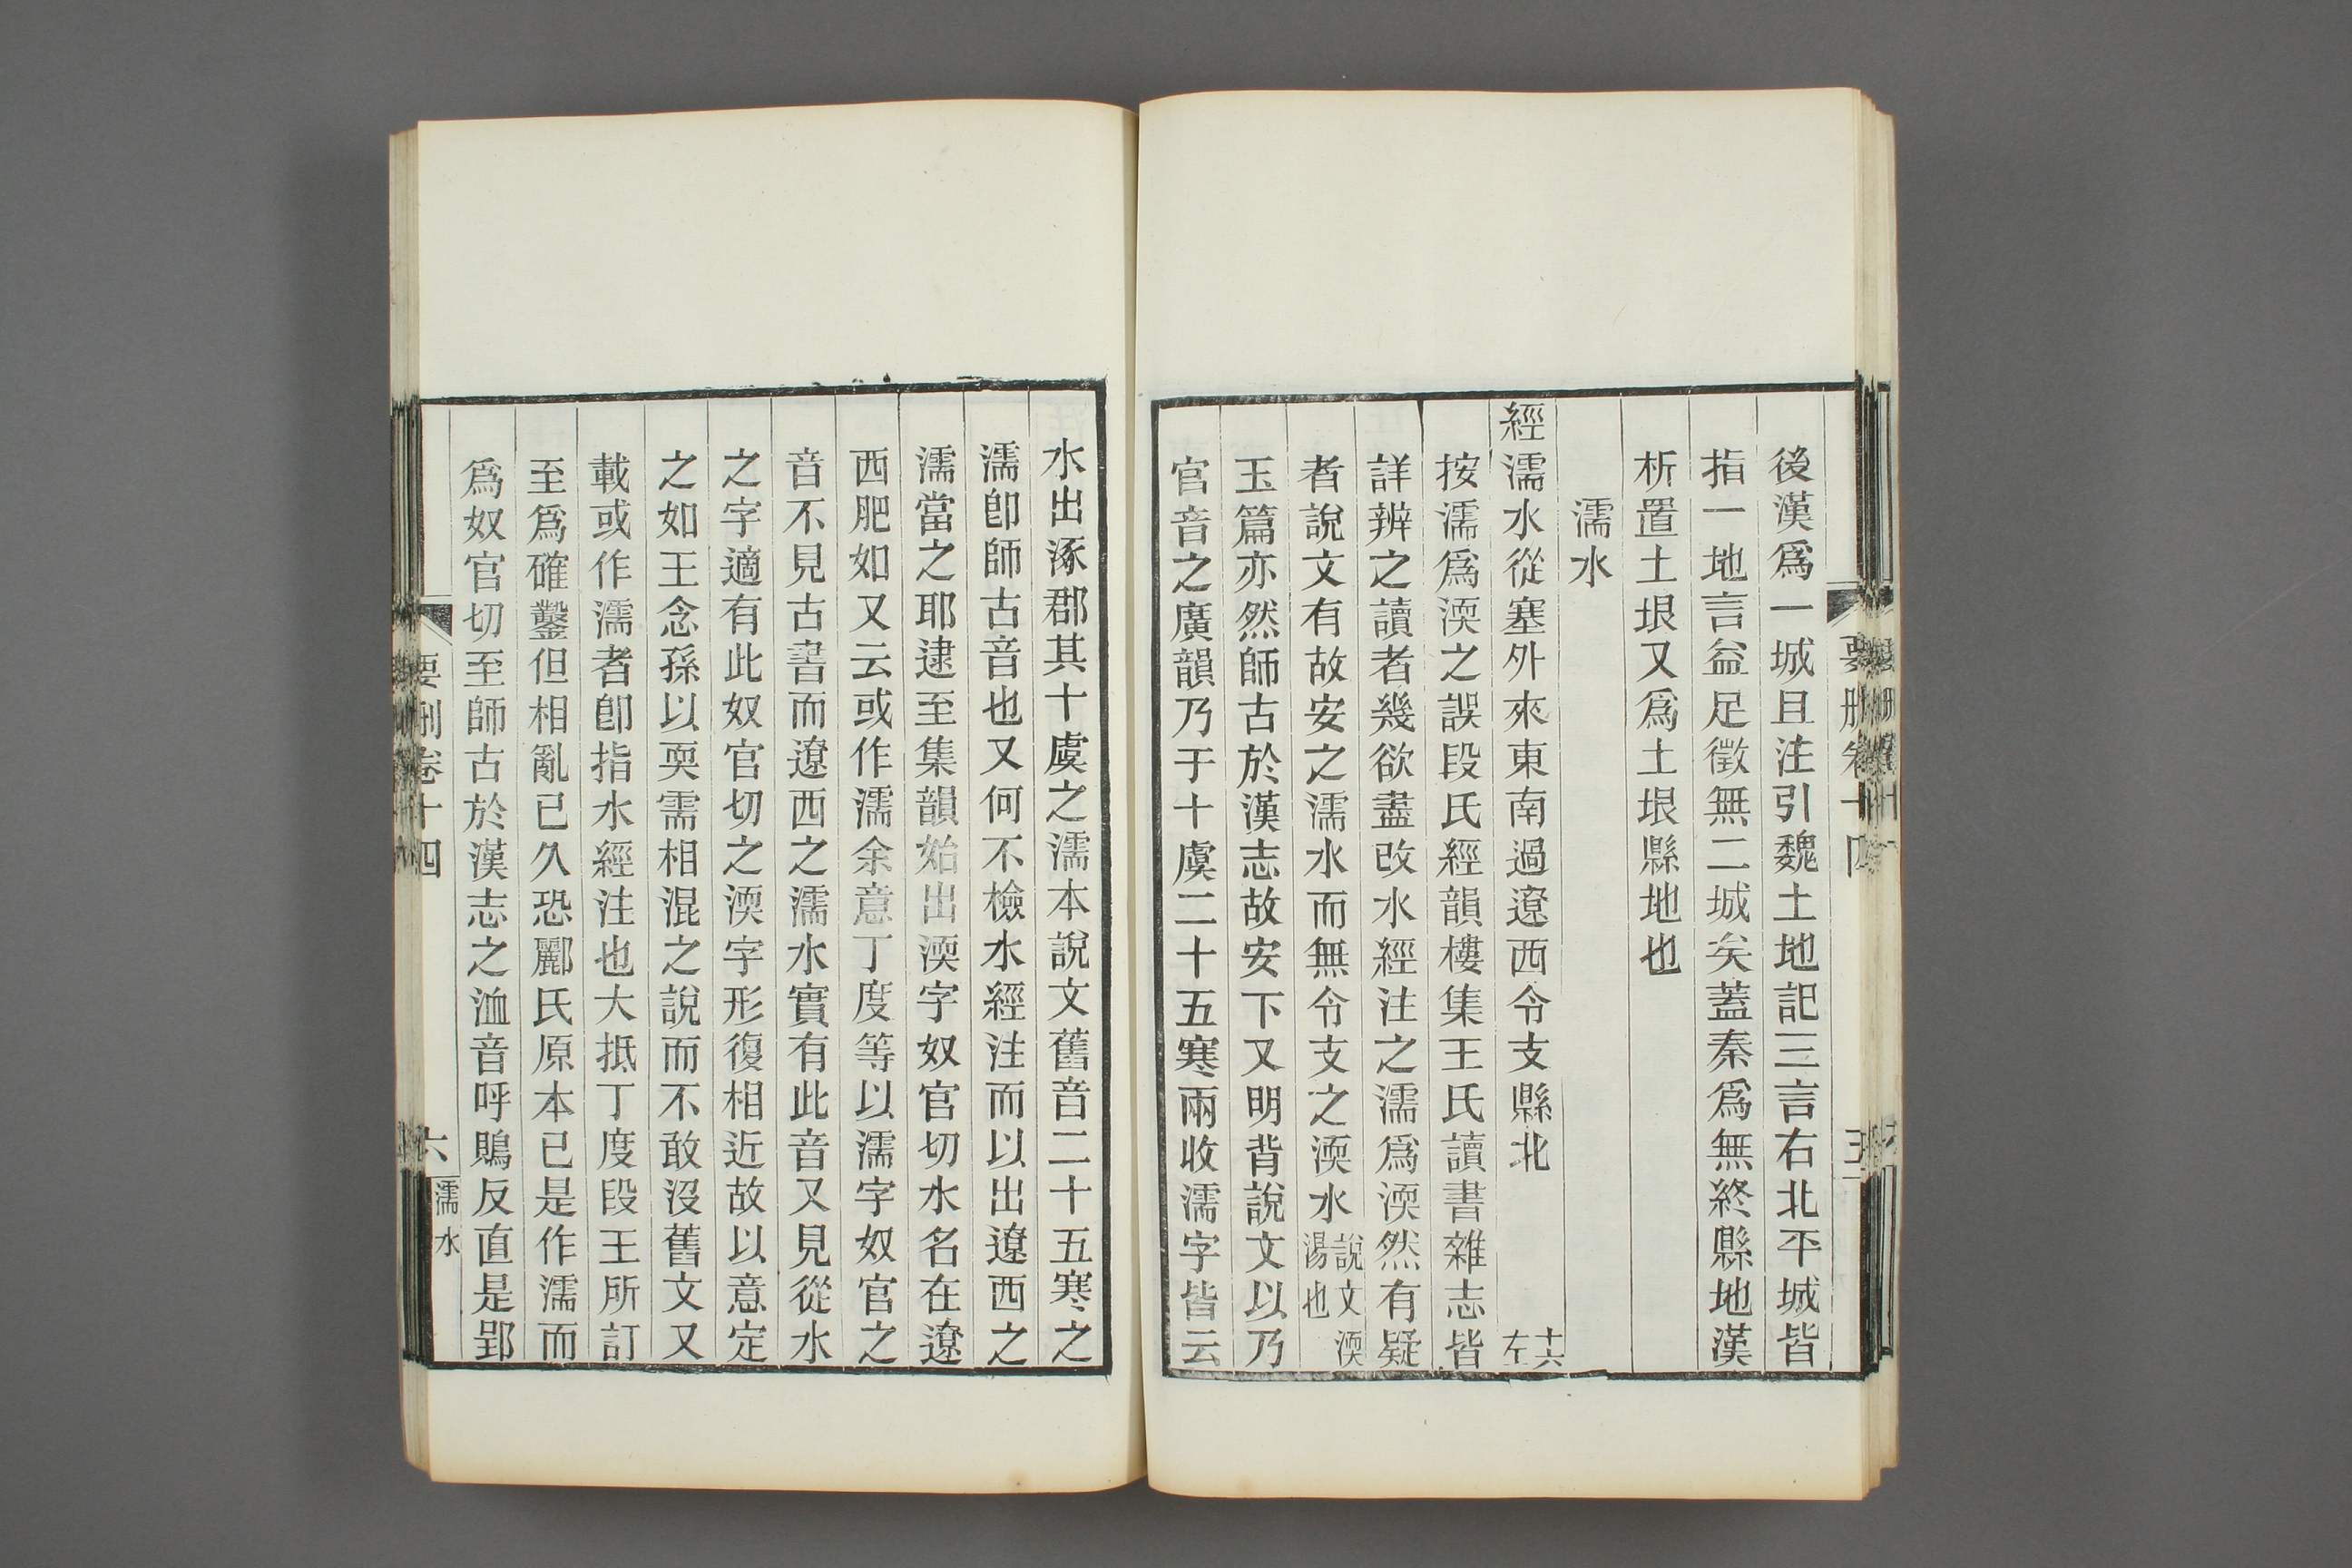 後漢爲一城且注引魏土地記三言右北平城皆
指一地言益足徵無二城矣蓋秦爲無終縣地漢
析置土垠又爲土垠縣地也
濡水
經濡水從塞外來東南過遼西令支縣北
十六
左
按濡爲渜之誤段氏經韻樓集王氏讀書雜志皆
詳辨之讀者幾欲盡改水經注之濡爲渜然有疑
者說文有故安之濡水而無令支之渜水說文渜湯也
玉篇亦然師古於漢志故安下又明背說文以乃
官音之廣韻乃于十虞二十五寒兩收濡字皆云
水出涿郡其十虞之濡本說文舊音二十五寒之
濡卽師古音也又何不檢水經注而以出遼西之
濡當之耶逮至集韻始出渜字奴官切水名在遼
西肥如又云或作濡余意丁度等以濡字奴官之
音不見古書而遼西之濡水實有此音又見從水
之字適有此奴官切之渜字形復相近故以意定
之如王念孫以耎需相混之說而不敢沒舊文又
載或作濡者卽指水經注也大抵丁度段王所訂
至爲確鑿但相亂已久恐酈氏原本已是作濡而
爲奴官切至師古於漢志之洫音呼鵙反直是郢
要刪卷十四
六
濡水